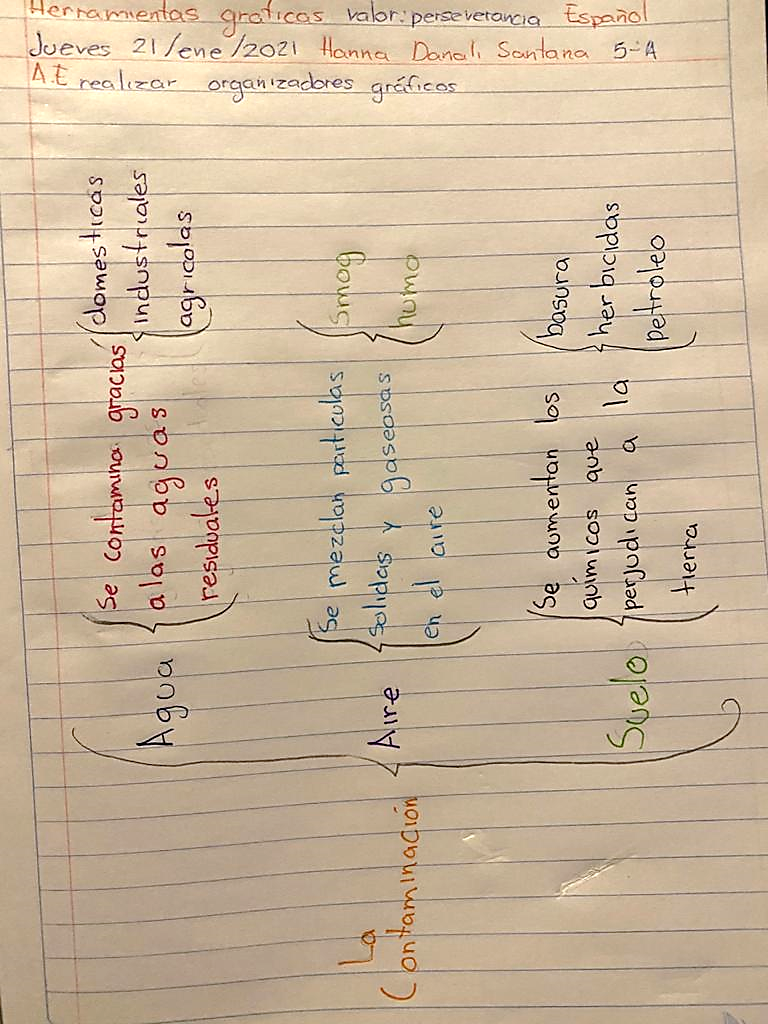 Herramientas graficas valor: perseverancia Español
Jueves 21/ene/2021 Hanna Danali Santana 5-A
A.E realizar organizadores gráficos
La
Contaminación
Agua
Se contamina gracias
alas aguas
residuales
domesticas
industriales
agricolas
Aire
Se mezclan particulas
solidas y gaseosas
en el aire
Smog
humo
Suelo
Se aumentan los
químicos que
perjudican a la
tierra
basura
herbicidas
petroleo